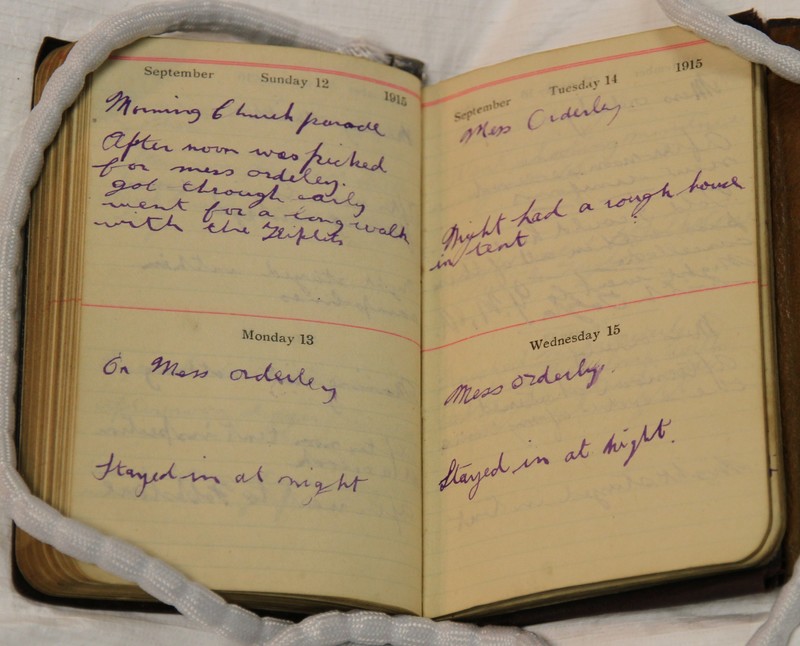 September Sunday 12 1915
Morning Church parade
After noon was picked
for mess orderley.
got through early
went for a long walk
with the
Monday 13
On Mess orderley
Stayed in at night
September Tuesday 14 1915
Mess Orderley
Night had a rough house
in tent
Wednesday 15
Mess orderly.
Stayed in at night.